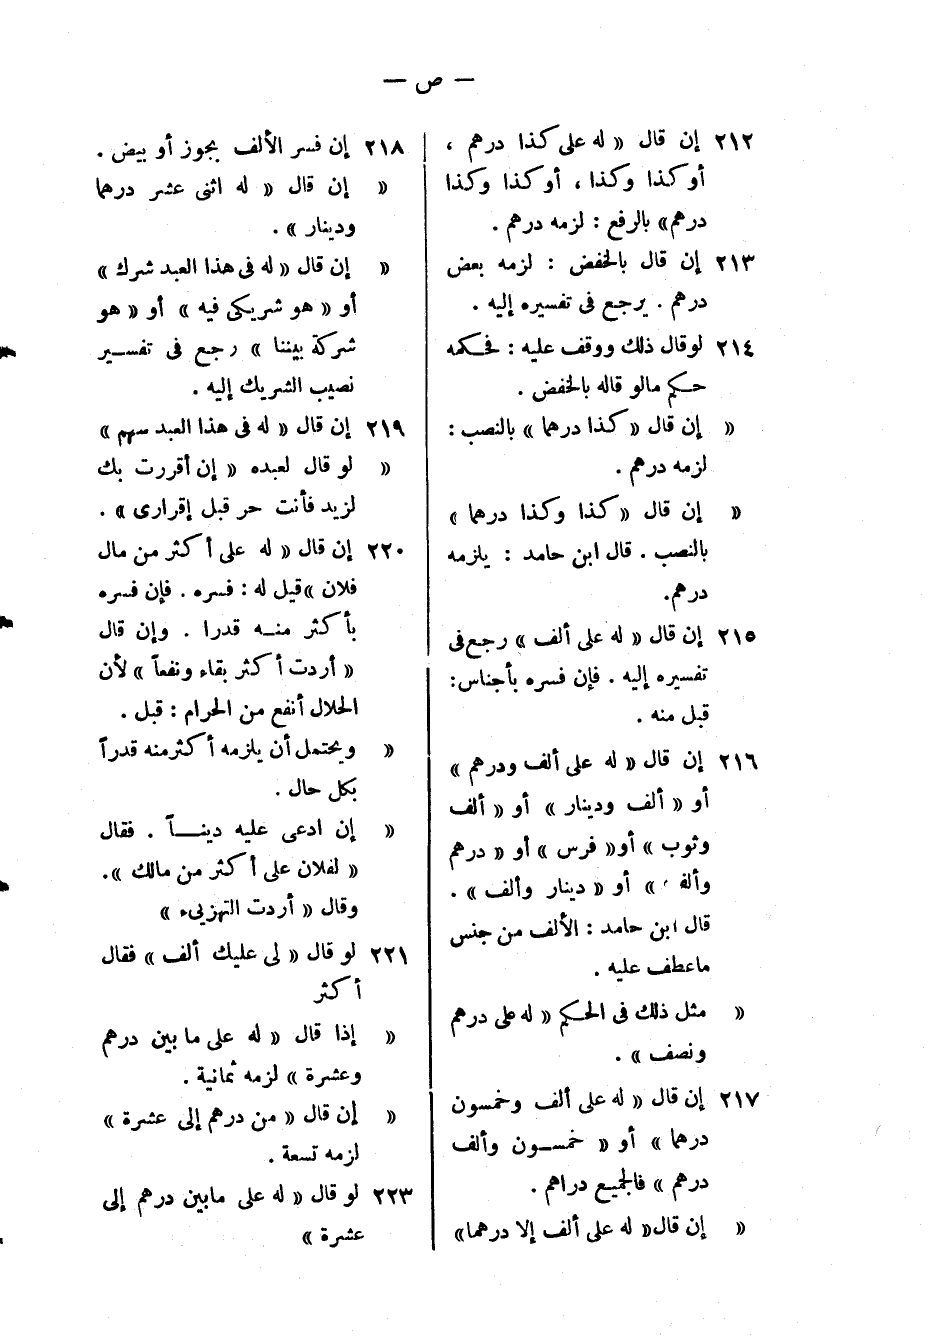 — ص —
٢١٢ إن قال « له على كذا درهم ،
أو كذا وكذا ، أو كذا وكذا
درهم » بالرفع : لزمه درهم .
٢١٣ إن قال بالخفض : لزمه بعض
درهم . يرجع فى تفسيره إليه .
٢١٤ لو قال ذلك ووقف عليه : فحكمه
حكم مالو قاله بالخفض .
« إن قال « كذا درهما » بالنصب :
لزمه درهم .
« إن قال « كذا وكذا درهما »
بالنصب . قال ابن حامد : يلزمه
درهم.
٢١٥ إن قال « له على ألف » رجع فى
تفسيره إليه . فإن فسره بأجناس:
قبل منه .
٢١٦ إن قال « له على ألف ودرهم »
أو « ألف ودينار » أو « ألف
وثوب » أو« فرس » أو « درهم
وألف » أو « دينار وألف » .
قال ابن حامد : الألف من جنس
ماعطف عليه .
« مثل ذلك فى الحكم « له على درهم
ونصف » .
٢١٧ إن قال « له على ألف وخمسون
درهما » أو « خمسون وألف
درهم » فالجميع دراهم .
« إن قال« له على ألف إلا درهما»
٢١٨ إن فسر الألف بجوز أو بيض .
« إن قال « له اثنى عشر درهما
ودينار » .
« إن قال « له فى هذا العبد شرك »
أو « هو شريكى فيه » أو « هو
شركة بيننا » رجع فى تفسير
نصيب الشريك إليه .
٢١٩ إن قال « له فى هذا العبد سهم »
« لو قال لعبده « إن أقررت بك
لزيد فأنت حر قبل إقرارى » .
٢٢٠ إن قال « له على أكثر من مال
فلان »قيل له : فسره . فإن فسره
بأكثر منه قدرا . وإن قال
« أردت أكثر بقاء ونفعاً » لأن
الحلال أنفع من الحرام : قبل .
« ويحتمل أن يلزمه أكثرمنه قدراً
بكل حال .
« إن ادعى عليه ديناً . فقال
« لفلان على أكثر من مالك ».
وقال « أردت التهزىء »
٢٢١ لو قال « لى عليك ألف » فقال
أكثر
« إذا قال « له على ما بين درهم
وعشرة » لزمه ثمانية .
« إن قال « من درهم إلى عشرة »
لزمه تسعة .
٢٢٣ لو قال « له على مابين درهم إلى
عشرة »